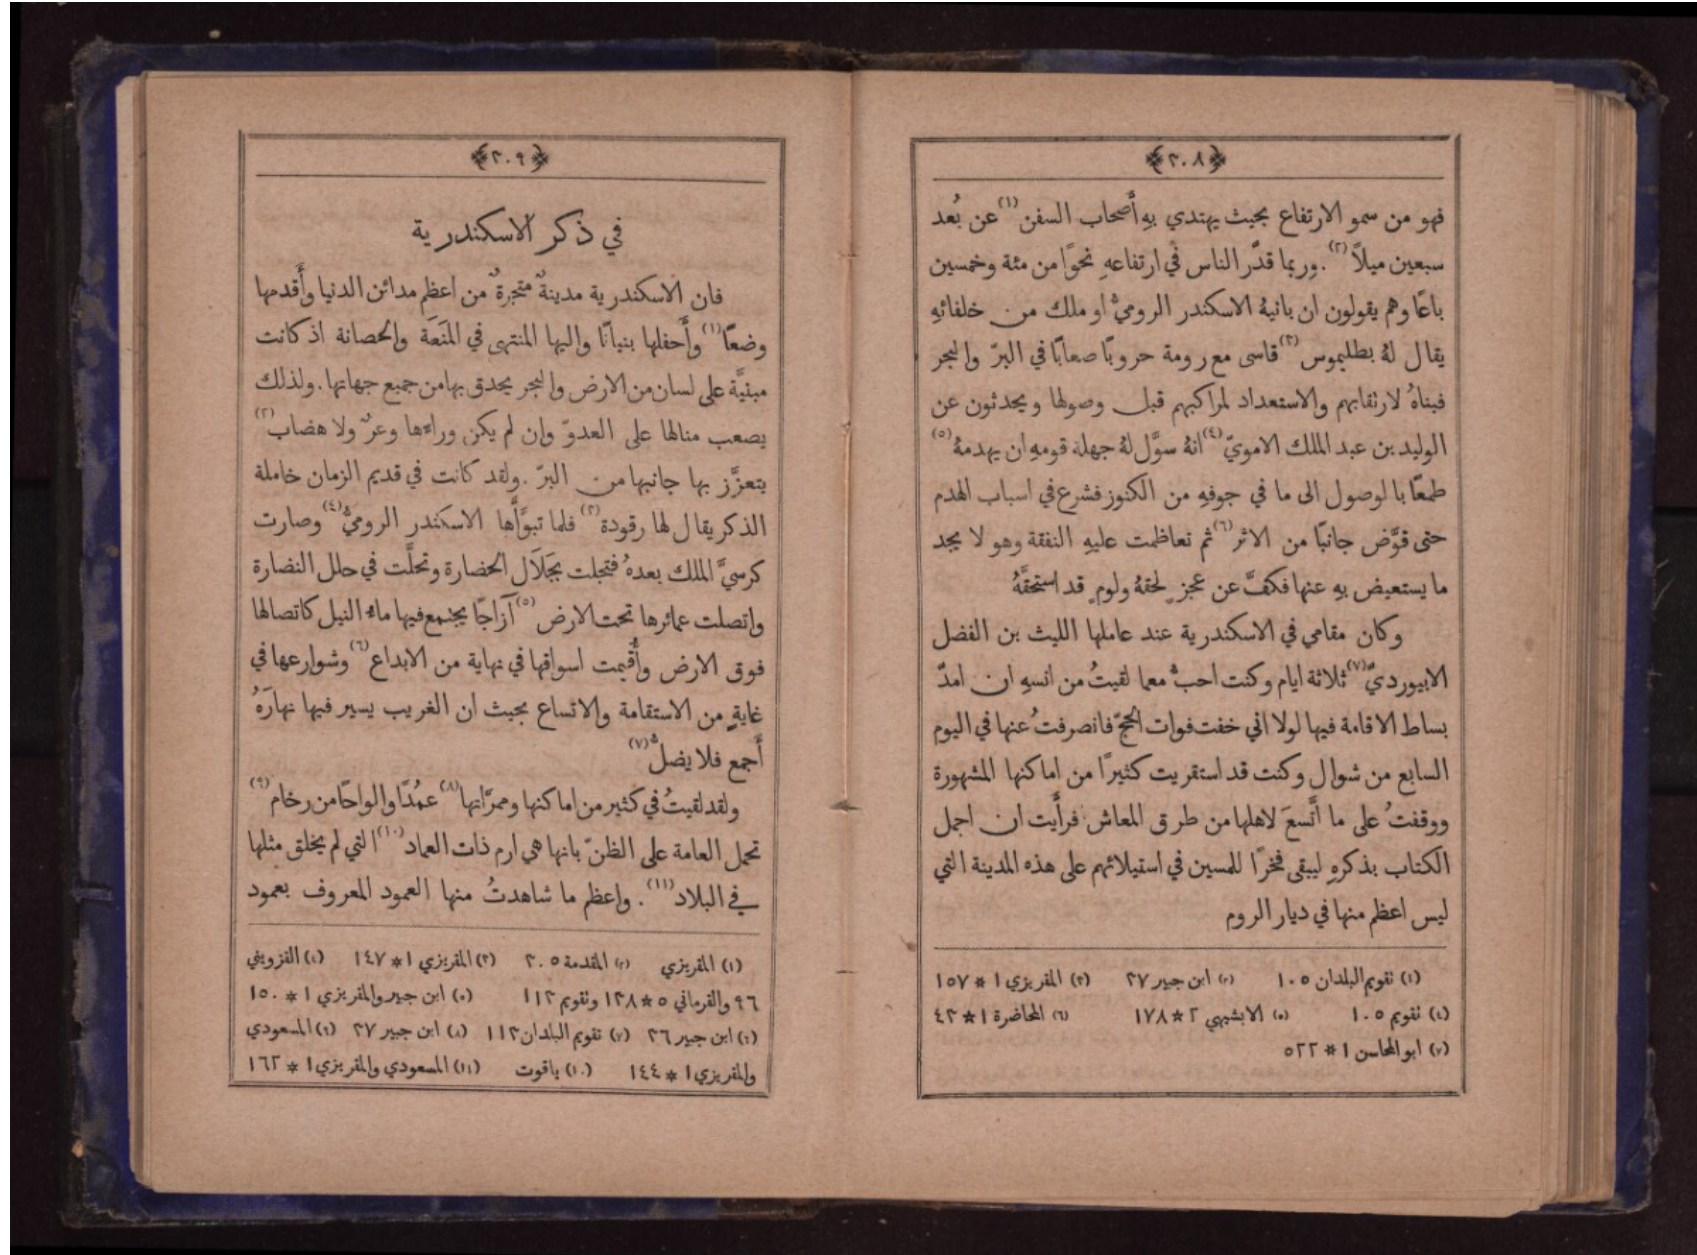 ﴿٢٠٨﴾
فهو من سمو الارتفاع بحيث يهتدي بهِ أَصحاب السفن (١) عن بُعد
سبعين ميلاً (٢). وربما قدَّر الناس في ارتفاعهِ نحوًا من مئة وخمسين
باعًا وهم يقولون ان بانيهُ الاسكندر الروميُّ او ملك من خلفائهِ
يقال لهُ بطليموس (٣) قاسى مع رومة حروبًا صعابًا في البرّ والبحر
فبناهُ لارتقابهم والاستعداد لمراكبهم قبل وصولها ويحدثون عن
الوليد بن عبد الملك الامويّ (٤) انهُ سوَّل لهُ جهلة قومهِ ان يهدمهُ (٥)
طمعًا بالوصول الى ما في جوفهِ من الكنوز فشرع في اسباب الهدم
حتى قوَّض جانبًا من الاثر (٦) ثم تعاظمت عليهِ النفقة وهو لا يجد
ما يستعيض بهِ عنها فكفَّ عن عجزٍ لحقهُ ولومٍ قد استحقَّهُ
وكان مقامي في الاسكندرية عند عاملها الليث بن الفضل
الابيورديّ (٧) ثلاثة ايام وكنت احبُّ معما لقيتُ من انسهِ ان امدّ
بساط الاقامة فيها لولا اني خفت فوات الحجّ فانصرفتُ عنها في اليوم
السابع من شوال وكنت قد استقريت كثيرًا من اماكنها المشهورة
ووقفتُ على ما اتَّسعَ لاهلها من طرق المعاش فرأَيت ان اجمل
الكتاب بذكرهِ ليبقى فخرًا للمسين في استيلائهم على هذه المدينة التي
ليس اعظم منها في ديار الروم
(١) تقويم البلدان ١٠٥ (٢) ابن جبير ٢٧ (٣) المقريزي ١*١٥٧
(٤) تقويم ١٠٥ (٥) الابشيهي ٢*١٧٨ (٦) المحاضرة ١*٤٣
(٧) ابو المحاسن ١*٥٢٢
﴿٢٠٩﴾
في ذكر الاسكندرية
فان الاسكندرية مدينةٌ متجرةٌ من اعظم مدائن الدنيا وأَقدمها
وضعًا (١) وأَحفلها بنيانًا واليها المنتهى في المَنَعَة والحصانة اذ كانت
مبنيَّة على لسان من الارض والبحر يحدق بها من جميع جهاتها. ولذلك
يصعب منالها على العدوّ وان لم يكن وراءَها وعرٌ ولا هضاب (٢)
يتعزَّز بها جانبها من البرّ. ولقد كانت في قديم الزمان خاملة
الذكر يقال لها رقودة (٣) فلما تبوَّأَها الاسكندر الروميُّ (٤) وصارت
كرسيَّ الملك بعدهُ فتجلت بجَلَال الحضارة وتحلَّت في حلل النضارة
واتصلت عمائرها تحت الارض (٥) آزاجًا يجتمع فيها ماء النيل كاتصالها
فوق الارض وأُقيمت اسواقها في نهاية من الابداع (٦) وشوارعها في
غايةٍ من الاستقامة والاتساع بحيث ان الغريب يسير فيها نهارَهُ
أَجمع فلا يضلُّ (٧)
ولقد لقيتُ في كثير من اماكنها وممرَّاتها (٨) عمُدًا والواحًا من رخام (٩)
تحمل العامة على الظنّ بانها هي ارم ذات العماد (١٠) التي لم يخلق مثلها
في البلاد (١١). واعظم ما شاهدتُ منها العمود المعروف بعمود
(١) المقريزي (٢) المقدمة ٣٠٥ (٣) المقريزي ١*١٤٧ (٤) القزويني
٩٦ والقرماني ٥*١٢٨ وتقويم ١١٣ (٥) ابن جبير والمقريزي ١*١٥٠
(٦) ابن جبير ٢٦ (٧) تقويم البلدان ١١٣ (٨) ابن جبير ٢٧ (٩) المسعودي
والمقريزي ١*١٤٤ (١٠) ياقوت (١١) المسعودي والمقريزي ١*١٦٢